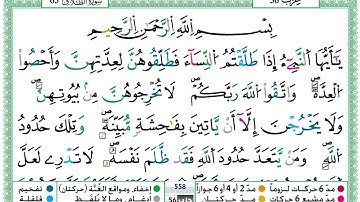 بِسْمِ اللَّهِ الرَّحْمَٰنِ الرَّحِيمِ
يَا أَيُّهَا النَّبِيُّ إِذَا طَلَّقْتُمُ النِّسَاءَ فَطَلِّقُوهُنَّ لِعِدَّتِهِنَّ وَأَحْصُوا
الْعِدَّةَ وَاتَّقُوا اللَّهَ رَبَّكُمْ لَا تُخْرِجُوهُنَّ مِنْ بُيُوتِهِنَّ
وَلَا يَخْرُجْنَ إِلَّا أَنْ يَأْتِينَ بِفَاحِشَةٍ مُبَيِّنَةٍ وَتِلْكَ حُدُودُ
اللَّهِ وَمَنْ يَتَعَدَّ حُدُودَ اللَّهِ فَقَدْ ظَلَمَ نَفْسَهُ لَا تَدْرِي لَعَلَّ
مدّ 6 حركات لزوماً مدّ 2 أو 4 أو 6 جوازاً 558 إخفاء، ومواقع الغُنَّة (حركتان) تفخيم
مدّ مشبع 6 حركات مدّ حركتان إدغام، وما لا يُلفَظ قلقلة